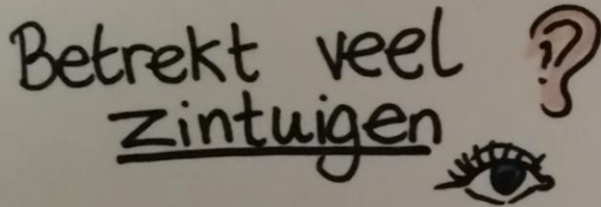 Betrekt veel
zintuigen